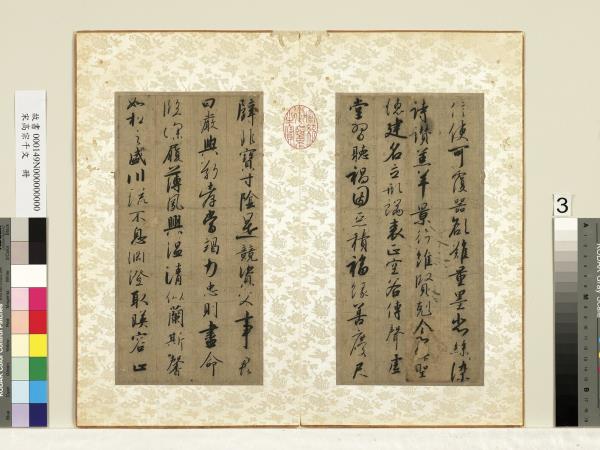 信使可覆器欲難量墨悲絲染
詩讚羔羊景行維賢剋念作聖
德建名立形端表正空谷傳聲虛
堂習聽禍因惡積福緣善慶尺
璧非寶寸陰是競資父事君
曰嚴與敬孝當竭力忠則盡命
臨深履薄夙興溫凊似蘭斯馨
如松之盛川流不息淵澄取映容止
故書000149N000000000
宋高宗千文 冊
3
KODAK Color Control Patches
KODAK Gray Scale